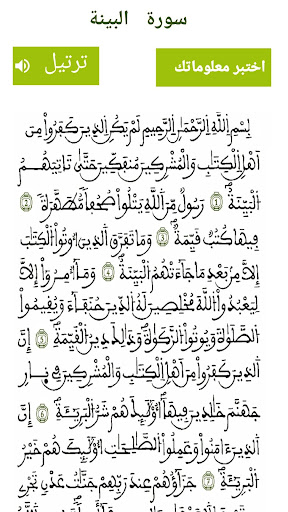 سورة البينة
اختبر معلوماتك
ترتيل
بِسْمِ اِللَّهِ اِلرَّحْمَٰنِ اِلرَّحِيمِ لَمْ يَكُنِ اِلذِينَ كَفَرُواْ مِنَ
اَهْلِ اِلْكِتَٰبِ وَالْمُشْرِكِينَ مُنفَكِّينَ حَتَّىٰ تَاتِيَهُمُ
اُلْبَيِّنَةُ (1) رَسُولٌ مِّنَ اَللَّهِ يَتْلُواْ صُحُفاً مُّطَهَّرَةً (2)
فِيهَا كُتُبٌ قَيِّمَةٌ (3) وَمَا تَفَرَّقَ اَلذِينَ أُوتُواْ اُلْكِتَٰبَ
إِلَّا مِنۢ بَعْدِ مَا جَآءَتْهُمُ اُلْبَيِّنَةُ (4) وَمَآ أُمِرُوٓاْ إِلَّا
لِيَعْبُدُواْ اُللَّهَ مُخْلِصِينَ لَهُ اُلدِّينَ حُنَفَآءَ وَيُقِيمُواْ
اُلصَّلَوٰةَ وَيُوتُواْ اُلزَّكَوٰةَ وَذَٰلِكَ دِينُ اُلْقَيِّمَةِ (5) إِنَّ
اَلذِينَ كَفَرُواْ مِنَ اَهْلِ اِلْكِتَٰبِ وَالْمُشْرِكِينَ فِي نارِ
جَهَنَّمَ خَٰلِدِينَ فِيهَآ أُوْلَٰٓئِكَ هُمْ شَرُّ اُلْبَرِيٓـَٔةِ (6) إِنَّ
اَلذِينَ ءَامَنُواْ وَعَمِلُواْ اُلصَّٰلِحَٰتِ أُوْلَٰٓئِكَ هُمْ خَيْرُ
اُلْبَرِيٓـَٔةِ (7) جَزَآؤُهُمْ عِندَ رَبِّهِمْ جَنَّٰتُ عَدْنٍ تَجْرِي